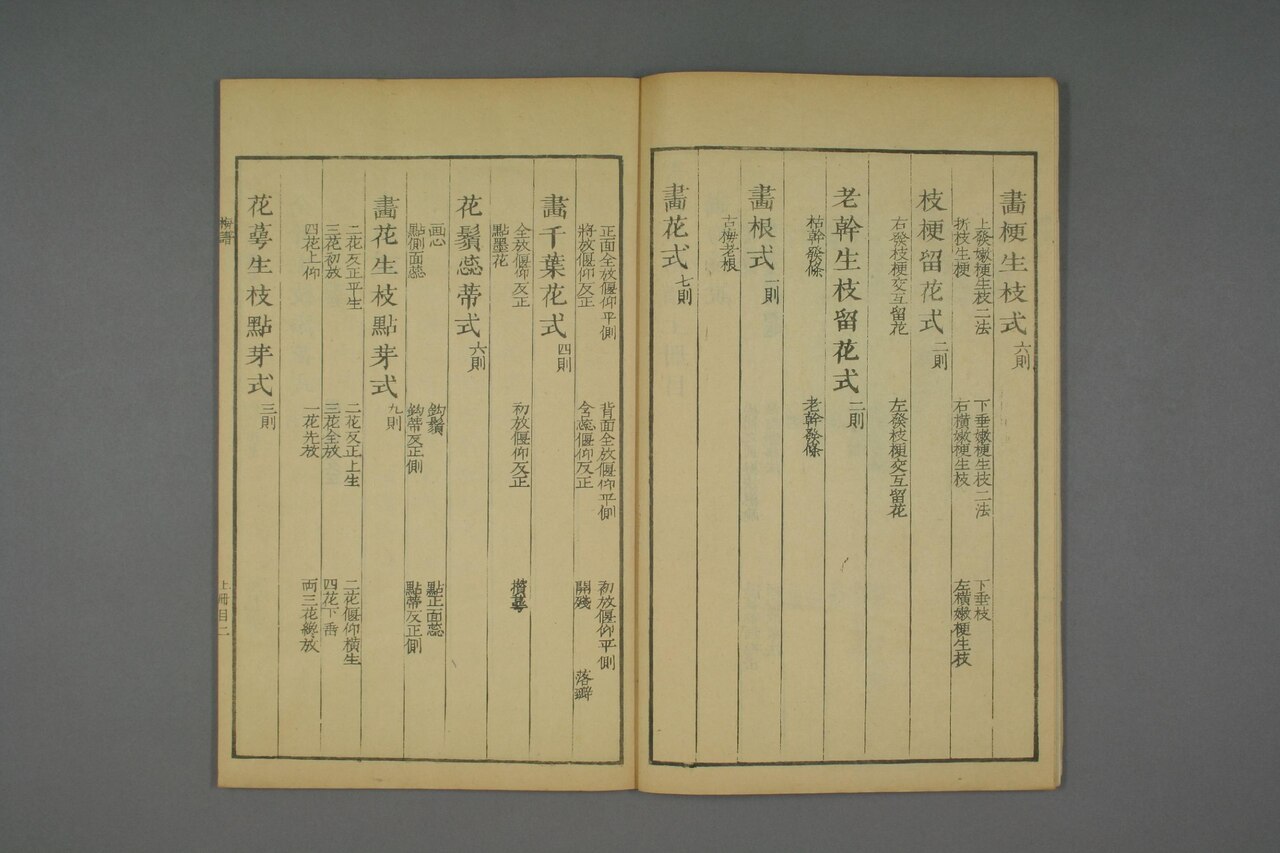 畫梗生枝式六則
上發嫩梗生枝二法　下垂嫩梗生枝二法　下垂枝
折枝生梗　右橫嫩梗生枝　左橫嫩梗生枝
枝梗留花式二則
右發枝梗交互留花　左發枝梗交互留花
老幹生枝留花式二則
枯幹發條　老幹發條
畫根式一則
古梅老根
畫花式七則
正面全放偃仰平側　背面全放偃仰平側　初放偃仰平側
將放偃仰反正　含蕊偃仰反正　開殘　落瓣
畫千葉花式四則
全放偃仰反正　初放偃仰反正　攢萼
點墨花
花鬚蕊蒂式六則
画心　鈎鬚　點正面蕊
點側面蕊　鈎蒂反正側　點蒂反正側
畫花生枝點芽式九則
二花反正平生　二花反正上生　二花偃仰橫生
三花初放　三花全放　四花下垂
四花上仰　一花先放　両三花總放
花萼生枝點芽式三則
梅譜
上冊目二